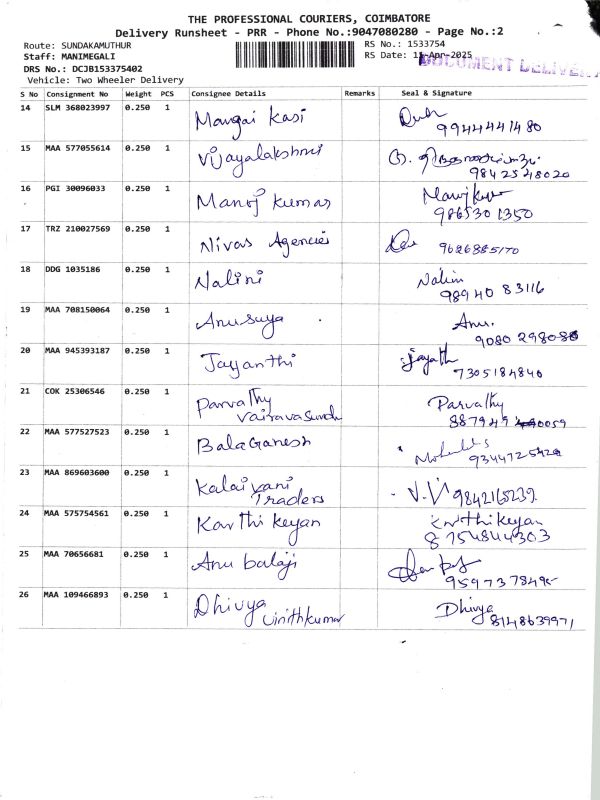 THE PROFESSIONAL COURIERS, COIMBATORE
Delivery Runsheet - PRR - Phone No.:9047080280 - Page No.:2
Route: SUNDAKAMUTHUR
Staff: MANIMEGALI
DRS No.: DCJB153375402
Vehicle: Two Wheeler Delivery
RS No.: 1533754
RS Date: 11-Apr-2025
DOCUMENT DELIVER
S No Consignment No Weight PCS Consignee Details Remarks Seal & Signature
14 SLM 368023997 0.250 1 Mangai Kasi
9944441480
15 MAA 577055614 0.250 1 Vijayalakshmi
9842548020
16 PGI 30096033 0.250 1 Manoj Kumar Manoj Kumar
9865301350
17 TRZ 210027569 0.250 1 Nivas Agencies 9626885170
18 DDG 1035186 0.250 1 Nalini Nalini
98940 83116
19 MAA 708150064 0.250 1 Anusuya Anu.
9080 298086
20 MAA 945393187 0.250 1 Jayanthi Jayathi
7305184840
21 COK 25306546 0.250 1 Parvathy Parvathy
Vairavasundu 887949 0059
22 MAA 577527523 0.250 1 BalaGanesh
9344725429
23 MAA 869603600 0.250 1 Kalaivani V.V 9842165239
Traders
24 MAA 575754561 0.250 1 Karthikeyan Karthikeyan
8754844303
25 MAA 70656681 0.250 1 Anu balaji
9597378495
26 MAA 109466893 0.250 1 Dhivya Dhivya
Vinithkumar 8148639971